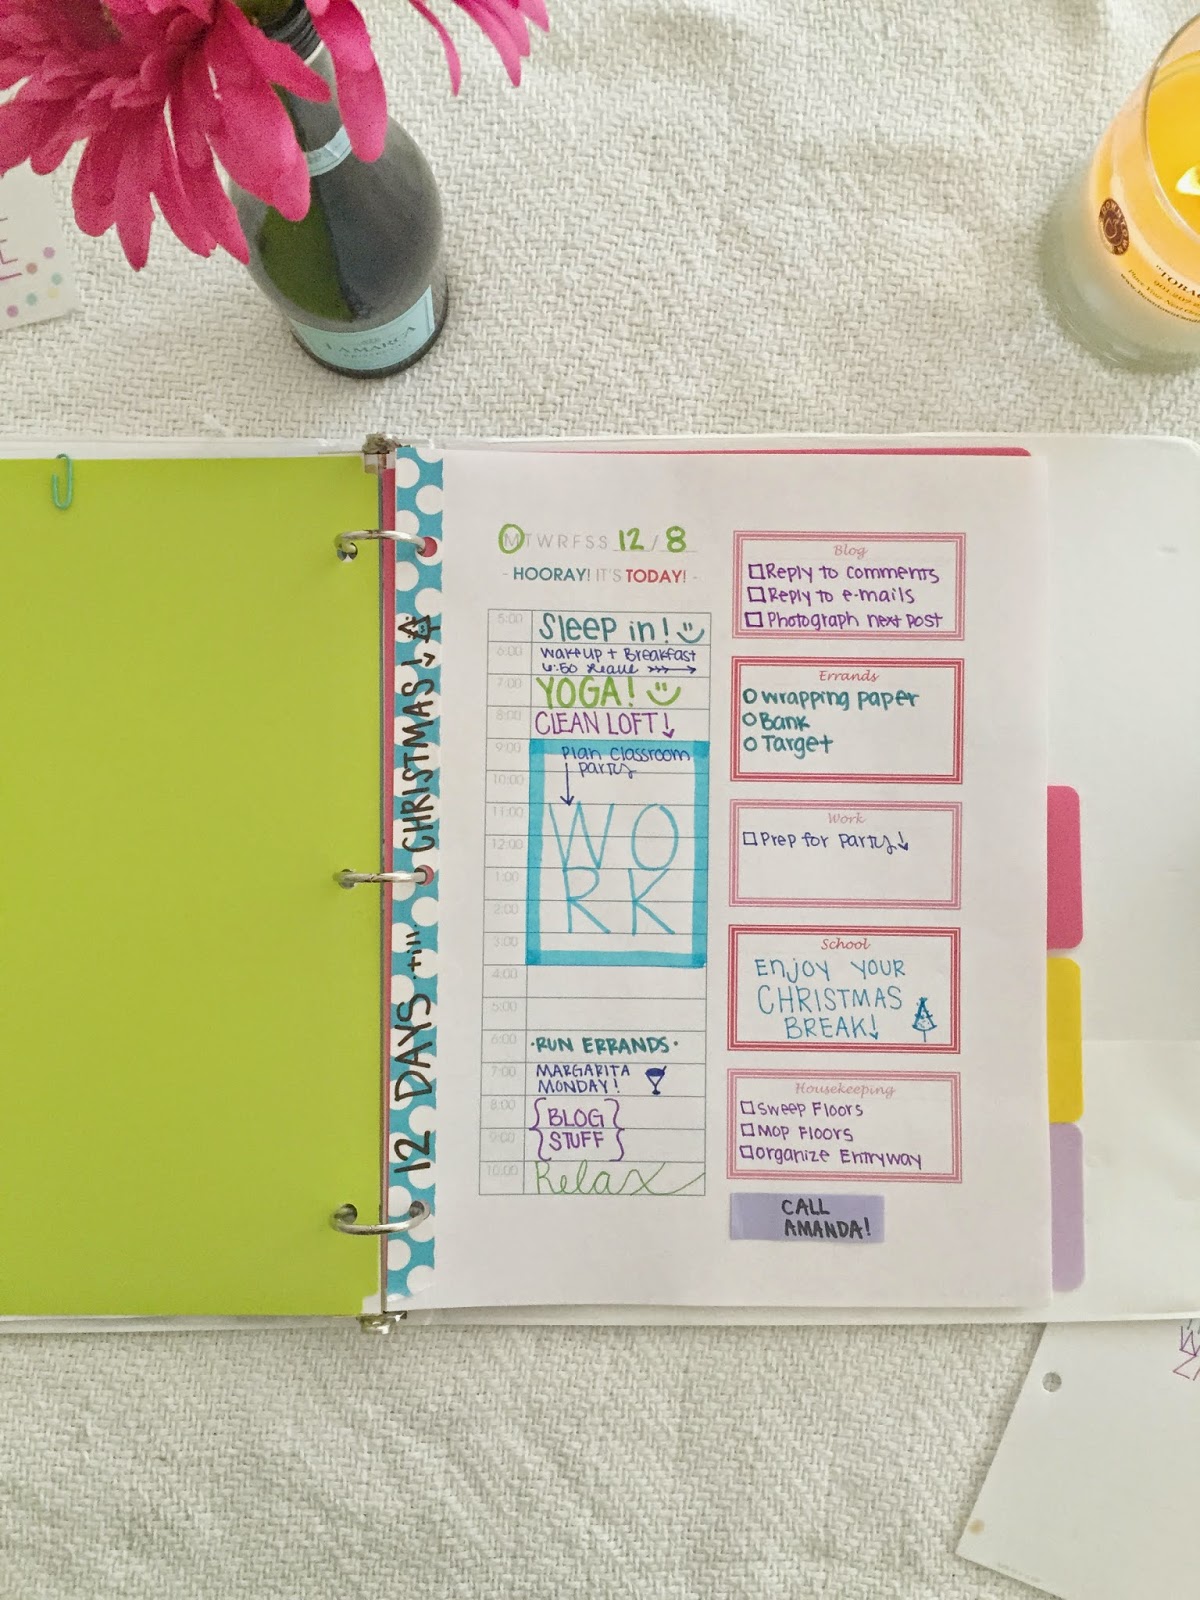 LAMARCA
12 DAYS till CHRISTMAS!
MTWRFSS 12 / 8
- HOORAY! IT'S TODAY! -
5:00 Sleep in!
6:00 Wake up + Breakfast
6:50 Leave
7:00 YOGA!
8:00 CLEAN LOFT!
9:00 Plan Classroom
Party
10:00
11:00 W O
12:00
1:00 R K
2:00
3:00
4:00
5:00
6:00 ·RUN ERRANDS·
7:00 MARGARITA
MONDAY!
8:00 {BLOG}
9:00 {STUFF}
10:00 Relax
Blog
Reply to comments
Reply to e-mails
Photograph next post
Errands
wrapping paper
Bank
Target
Work
Prep for Party!
School
ENJOY YOUR
CHRISTMAS
BREAK!
Housekeeping
Sweep Floors
Mop Floors
Organize Entryway
CALL
AMANDA!